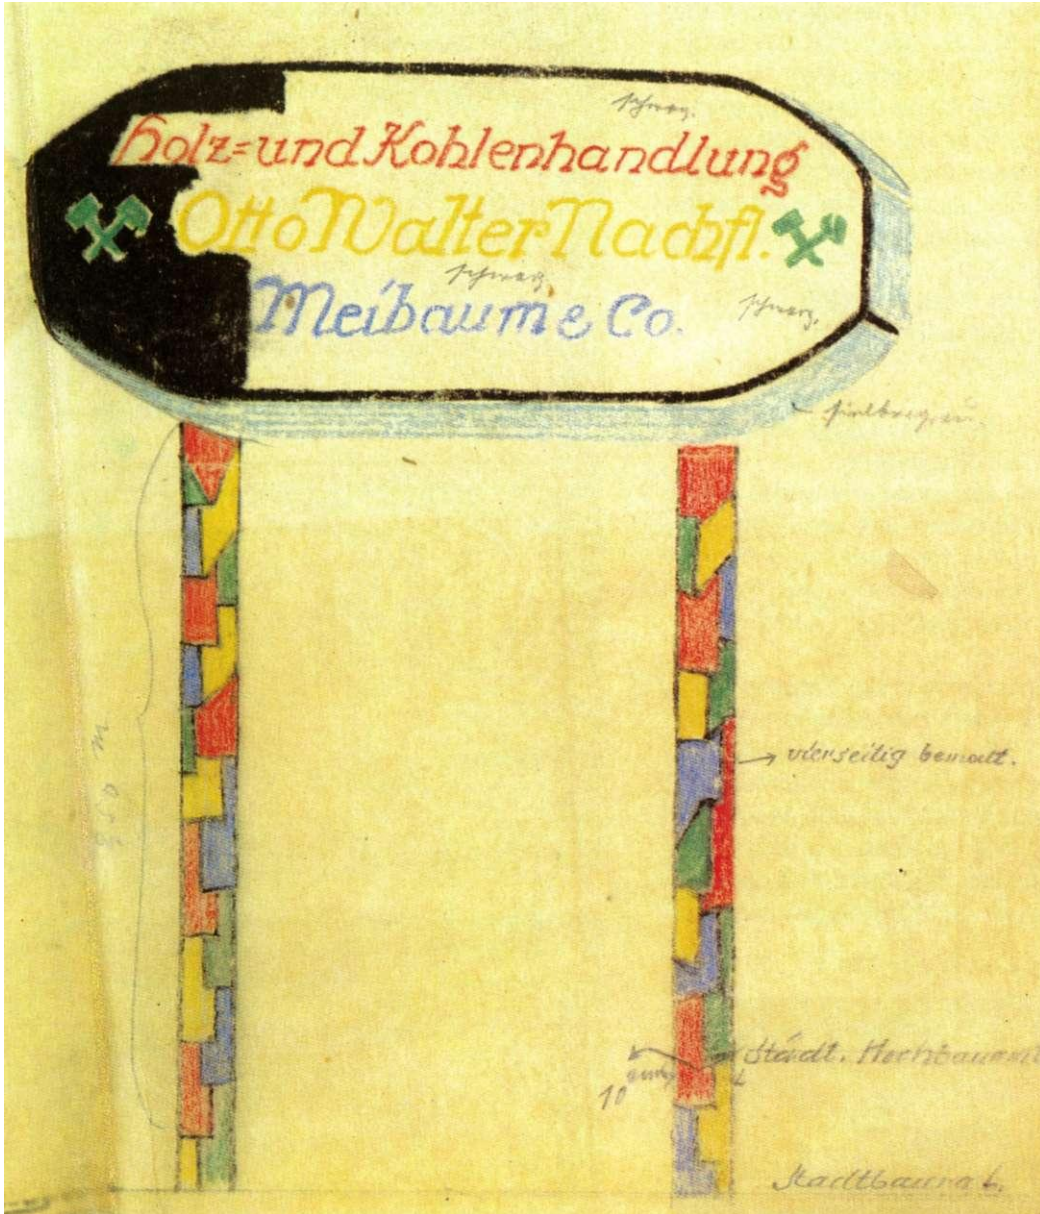 schwarz.
Holz=und Kohlenhandlung
Otto Walter Nachfl.
schwarz.
Meibaum & Co.
schwarz.
silbergrau.
vierseitig bemalt.
Städt. Hochbauamt
10
Stadtbaurat.